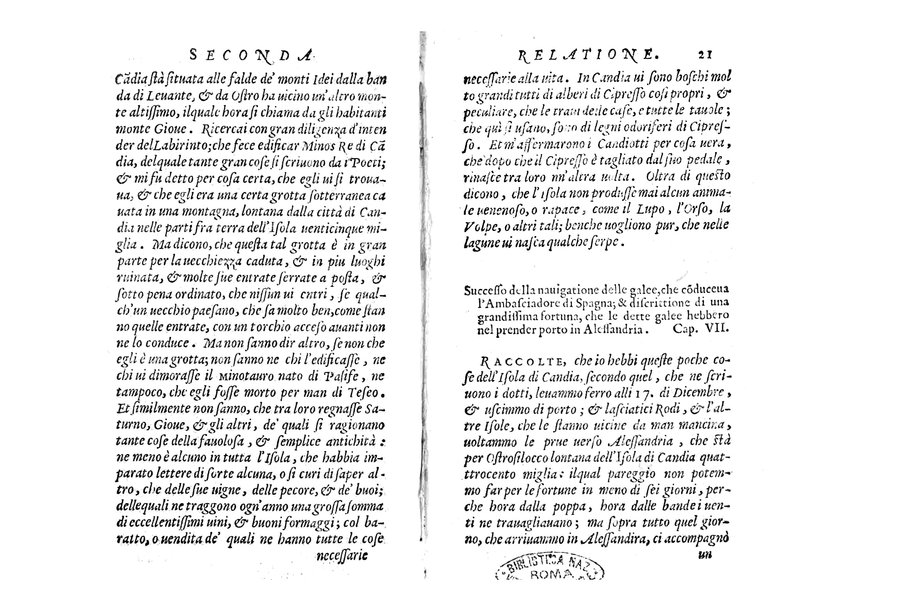 SECONDA
Cãdia stà situata alle falde de' monti Idei dalla ban
da di Leuante, & da Ostro ha uicino un'altro mon-
te altissimo, ilquale hora si chiama da gli habitanti
monte Gioue. Ricercai con gran diligenza d'inten
der del Labirinto; che fece edificar Minos Re di Cã
dia, del quale tante gran cose si scriuono da i Poeti;
& mi fu detto per cosa certa, che egli ui si troua-
ua, & che egli era una certa grotta sotterranea ca
uata in una montagna, lontana dalla città di Can-
dia nelle parti fra terra dell'Isola uenticinque mi-
glia. Ma dicono, che questa tal grotta è in gran
parte per la uecchiezza caduta, & in piu luoghi
ruinata, & molte sue entrate serrate a posta, &
sotto pena ordinato, che nissun ui entri, se qual-
ch'un uecchio paesano, che sa molto ben, come stan
no quelle entrate, con un torchio acceso auanti non
ne lo conduce. Ma non sanno dir altro, se non che
egli è una grotta; non sanno ne chi l'edificasse, ne
chi ui dimorasse il Minotauro nato di Pasife, ne
tampoco, che egli fosse morto per man di Teseo.
Et similmente non sanno, che tra loro regnasse Sa-
turno, Gioue, & gli altri, de' quali si ragionano
tante cose della fauolosa, & semplice antichità:
ne meno è alcuno in tutta l'Isola, che habbia im-
parato lettere di sorte alcuna, o si curi di saper al-
tro, che delle sue uigne, delle pecore, & de' buoi;
delle quali ne traggono ogn'anno una grossa somma
di eccellentissimi uini, & buoni formaggi; col ba-
ratto, o uendita de' quali ne hanno tutte le cose
necessarie
RELATIONE. 21
necessarie alla uita. In Candia ui sono boschi mol
to grandi tutti di alberi di Cipresso cosi propri, &
peculiare, che le traui delle case, e tutte le tauole;
che quì si usano, sono di legni odoriferi di Cipres-
so. Et m'affermarono i Candiotti per cosa uera,
che dopo che il Cipresso è tagliato dal suo pedale,
rinasce tra loro un'altra uolta. Oltra di questo
dicono, che l'Isola non produsse mai alcun anima-
le uenenoso, o rapace, come il Lupo, l'Orso, la
Volpe, o altri tali; benche uogliono pur, che nelle
lagune ui nasca qualche serpe.
Successo della nauigatione delle galee, che cõduceua
l'Ambasciadore di Spagna; & discrittione di una
grandissima fortuna, che le dette galee hebbero
nel prender porto in Alessandria. Cap. VII.
RACCOLTE, che io hebbi queste poche co-
se dell'Isola di Candia, secondo quel, che ne scri-
uono i dotti, leuammo ferro alli 17. di Decembre,
& uscimmo di porto; & lasciatici Rodi, & l'al-
tre Isole, che le stanno uicine da man mancina,
uoltammo le prue uerso Alessandria, che stà
per Ostrosilocco lontana dell'Isola di Candia quat-
trocento miglia: ilqual pareggio non potem-
mo far per le fortune in meno di sei giorni, per-
che hora dalla poppa, hora dalle bande i uen-
ti ne trauagliauano; ma sopra tutto quel gior-
no, che arriuammo in Alessandira, ci accompagnò
un
BIBLIOTECA NAZ.
ROMA